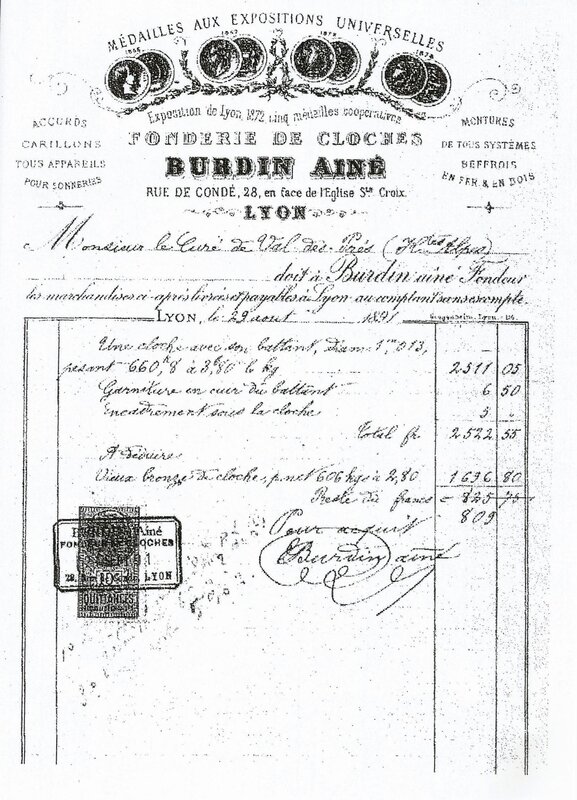 MÉDAILLES AUX EXPOSITIONS UNIVERSELLES
1867
1872
1878
Exposition de Lyon, 1872 cinq médailles coopératives
ACCORDS
CARILLONS
TOUS APPAREILS
POUR SONNERIES
FONDERIE DE CLOCHES
BURDIN AINÉ
RUE DE CONDÉ, 28, en face de l'Eglise Ste Croix.
LYON
MONTURES
DE TOUS SYSTÈMES
BEFFROIS
EN FER & EN BOIS
Monsieur le Curé de Val des Prés (Htes Alpes)
doit à Burdin aîné Fondeur
les marchandises ci-après livrées et payables à Lyon au comptant sans escompte.
LYON, le 29 aout 1891
Une cloche avec son battant, diam 1m,013,
pesant 660,k8 à 3f80 le kg 2511 05
Garniture en cuir du battant 6 50
Encadrement sous la cloche 5 "
Total fr 2522 55
A déduire
Vieux bronze de cloche, p. net 606 kgs à 2,80 1696 80
Reste dû francs = 825 75
809
Pour acquit
Burdin aîné
Aîné
FONDEUR DE CLOCHES
28, LYON
10
QUITTANCES